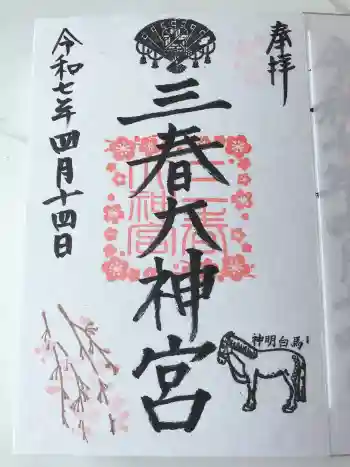 奉拝
三春大神宮
令和七年四月十四日
三春大神宮
神明白馬